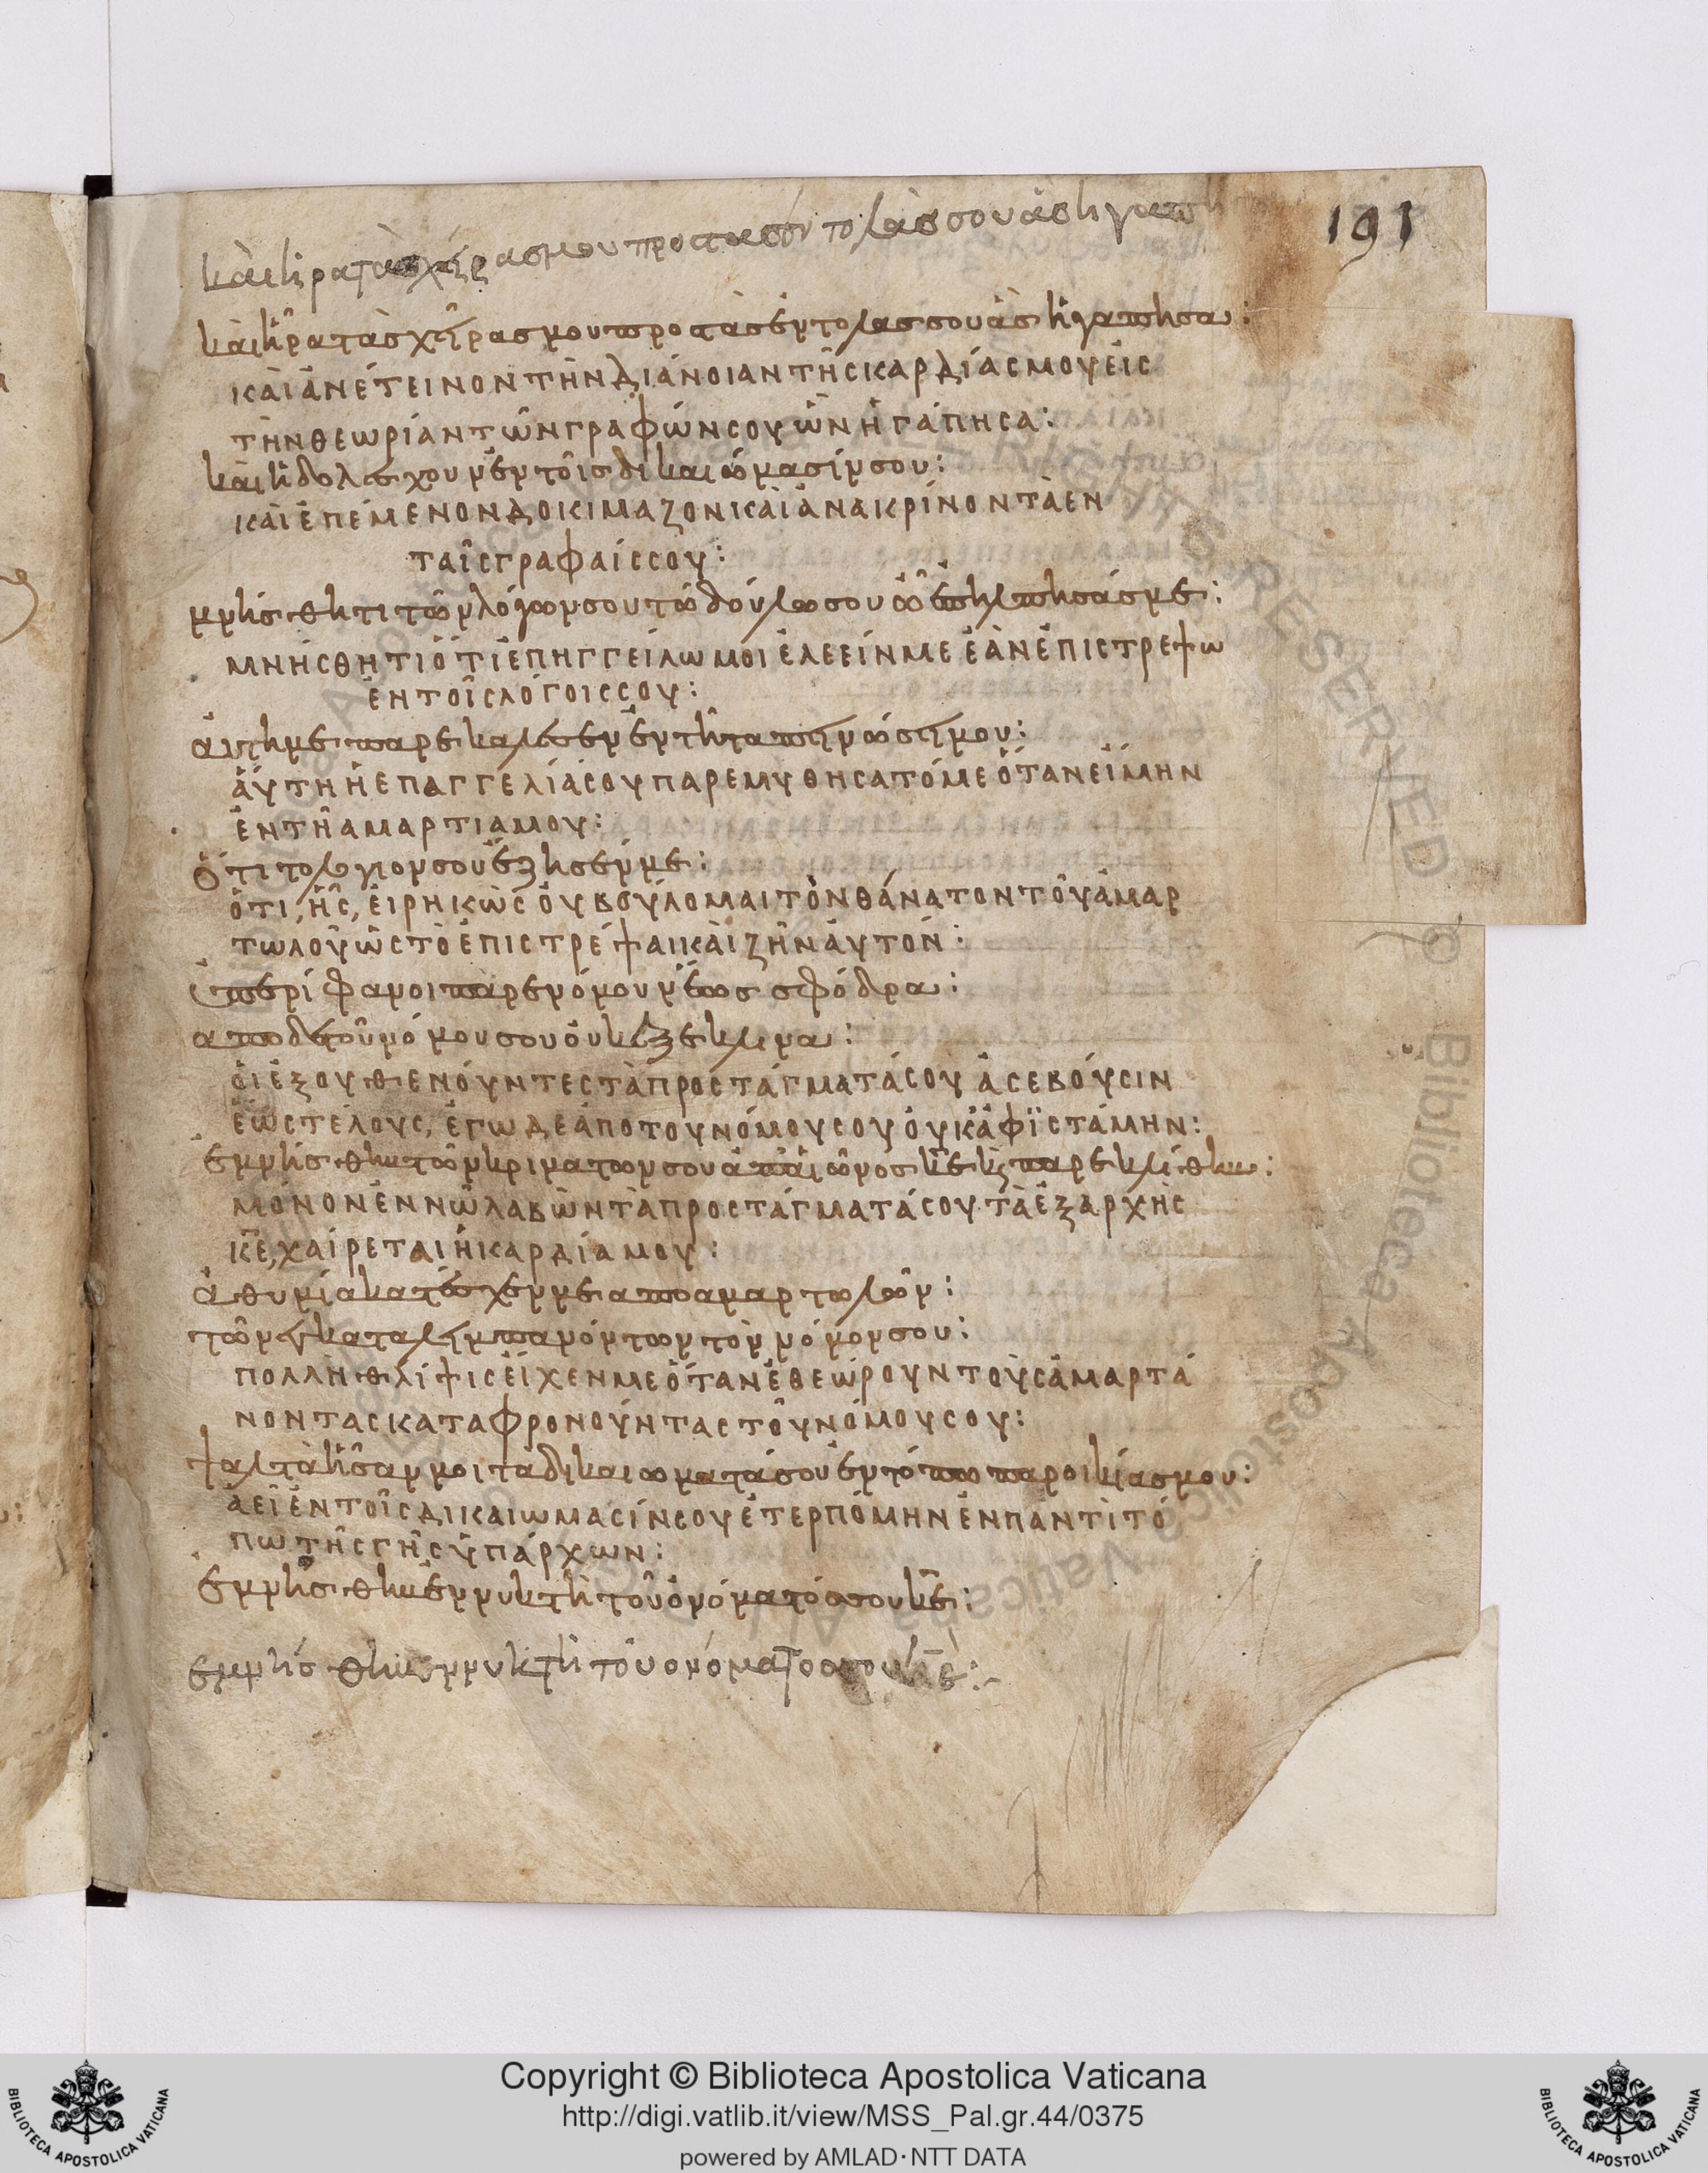 191
κὰι ἠρα τὰς χείρας μου προς τὰς ἐντολὰς σου ἁς ἠγαπη
κὰι ἦρα τὰς χεῖρας μου προς τὰς ἐντολας σου ἃς ἠγαπησα:
ΚΑῚ ἈΝΈΤΕΙΝΟΝ ΤῊΝ ΔΙΆΝΟΙΑΝ ΤΗ͂Σ ΚΑΡΔΊΑΣ ΜΟΥ ἘΙΣ
ΤῊΝ ΘΕΩΡΊΑΝ ΤΩ͂Ν ΓΡΑΦΏΝ ΣΟΥ ὯΝ ἨΓΆΠΗΣΑ:
κὰι ἠδολέσχουν ἐν τοῖς δικαιώμασίν σου:
ΚΑῚ ἘΠΈΜΕΝΟΝ ΔΟΚΙΜΑΖΟΝ ΚΑῚ ἈΝΑΚΡΊΝΟΝ ΤᾺ ΕΝ
ΤΑΙ͂Σ ΓΡΑΦΑΊΣ ΣΟΥ:
μνήσθητι τῶν λόγων σου τῶ δούλω σου ὧ ἐπήλπησάς με:
ΜΝΉΣΘΗΤΙ Ὅ ΤΙ ἘΠΗΓΓΕΊΛΩ ΜΟΙ ἘΛΕΕΊΝ ΜΕ ἘᾺΝ ἘΠΙΣΤΡΕΨΩ
ἘΝ ΤΟΙ͂Σ ΛΌΓΟΙΣ ΣΟΥ:
ἁύτη με παρεκαλέσεν ἐν τῆ ταπεινώσεί μου:
ἉΎΤΗ Ἡ ΕΠΑΓΓΕΛΊΑ ΣΟΥ ΠΑΡΕΜΥΘΗΣΑΤΌ ΜΕ ὍΤΑΝ ΕΊΜΗΝ
ἘΝ ΤΗ͂ ΑΜΑΡΤΙΑ ΜΟΥ:
ὅτι το λόγιον σου ἔζησέν με:
ὍΤΙ, ἮΣ, ἘΙΡΗΚῺΣ ὈΥ ΒΟΎΛΟΜΑΙ ΤῸΝ ΘΆΝΑΤΟΝ ΤΟΥ͂ ἉΜΑΡ
ΤΩΛΟΥ͂ ὩΣ ΤῸ ἘΠΙΣΤΡΈΨΑΙ ΚΑῚ ΖΗ͂Ν ἈΥΤΟΝ:
ὑπερίφανοι παρενόμουν ἕως σφόδρα:
απο δὲ τοῦ νόμου σου ὀυκ ἐξέκλινα:
ὉΙ ἘΞΟΥΘΕΝΌΥΝΤΕΣ ΤᾺ ΠΡΟΣΤΆΓΜΑΤΆ ΣΟΥ ἈΣΕΒΌΥΣΙΝ
ἝΩΣ ΤΈΛΟΥΣ, ἘΓΩ ΔΕ ἈΠΟ ΤΟΥ ΝΌΜΟΥ ΣΟΥ ὈΥΚ ἈΦΪΣΤΆΜΗΝ:
ἐμνήσθην τῶν κριματων σου ἀπ ἀιῶνος κε̄ κ παρεκλίθην:
ΜΌΝΟΝ ἘΝ ΝΩ͂ ΛΑΒῺΝ ΤᾺ ΠΡΟΣΤΆΓΜΑΤΆ ΣΟΥ ΤᾺ ἘΞ ΑΡΧΗ͂Σ
ΚΕ̄, ΧΑΊΡΕΤΑΙ Ἡ ΚΑΡΔΊΑ ΜΟΥ:
ἀθυμία κατέσχεν με απο αμαρτωλῶν:
τῶν ἐγκαταλιμπανόντων τὸν νόμον σου:
ΠΟΛΛῊ ΘΛΊΨΙΣ ἘΊΧΕΝ ΜΕ ὍΤΑΝ ἘΘΕΏΡΟΥΝ ΤΟῪΣ ἉΜΑΡΤΆ
ΝΟΝΤΑΣ ΚΑΤΑΦΡΟΝΟΎΝΤΑΣ ΤΟΥ͂ ΝΌΜΟΥ ΣΟΥ:
ψαλτὰ ἦσαν μοι τὰ δικαιωματά σου ἐν τόπω παροικίας μου:
ἈΕῚ ἘΝ ΤΟΙ͂Σ ΔΙΚΑΙΩΜΑΣΊΝ ΣΟΥ ἘΤΕΡΠΌΜΗΝ ἘΝ ΠΑΝΤῚ ΤΌ
ΠΩ ΤΗ͂Σ ΓΗ͂Σ ὙΠΆΡΧΩΝ:
ἐμνήσθην εν νυκτὴ τοῦ ὀνόματός σου κε̄:
εμνήσθην εν νυκτὴ τοῦ ονόματος σου κε̄:
Copyright © Biblioteca Apostolica Vaticana
http://digi.vatlib.it/view/MSS_Pal.gr.44/0375
powered by AMLAD·NTT DATA
BIBLIOTECA APOSTOLICA VATICANA
BIBLIOTECA APOSTOLICA VATICANA